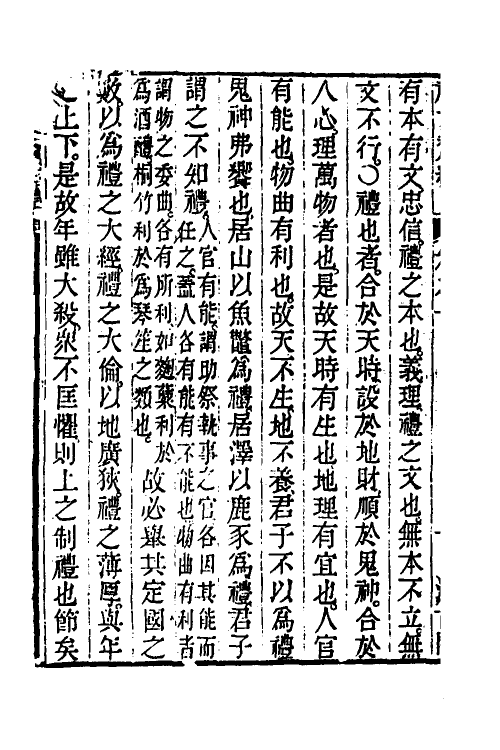 有本有文忠信禮之本也義理禮之文也無本不立無
文不行○禮也者合於天時設於地財順於鬼神合於
人心理萬物者也是故天時有生也地理有宜也人官
有能也物曲有利也故天不生地不養君子不以爲禮
鬼神弗饗也居山以魚鼈爲禮居澤以鹿豕爲禮君子
謂之不知禮人官有能謂助祭執事之官各因其能而
任之蓋人各有能有不能也物曲有利者
謂物之委曲各有所利如麴糵利於
爲酒醴桐竹利於爲琴笙之類也故必舉其定國之
數以爲禮之大經禮之大倫以地廣狹禮之薄厚與年
之上下是故年雖大殺衆不匡懼則上之制禮也節矣